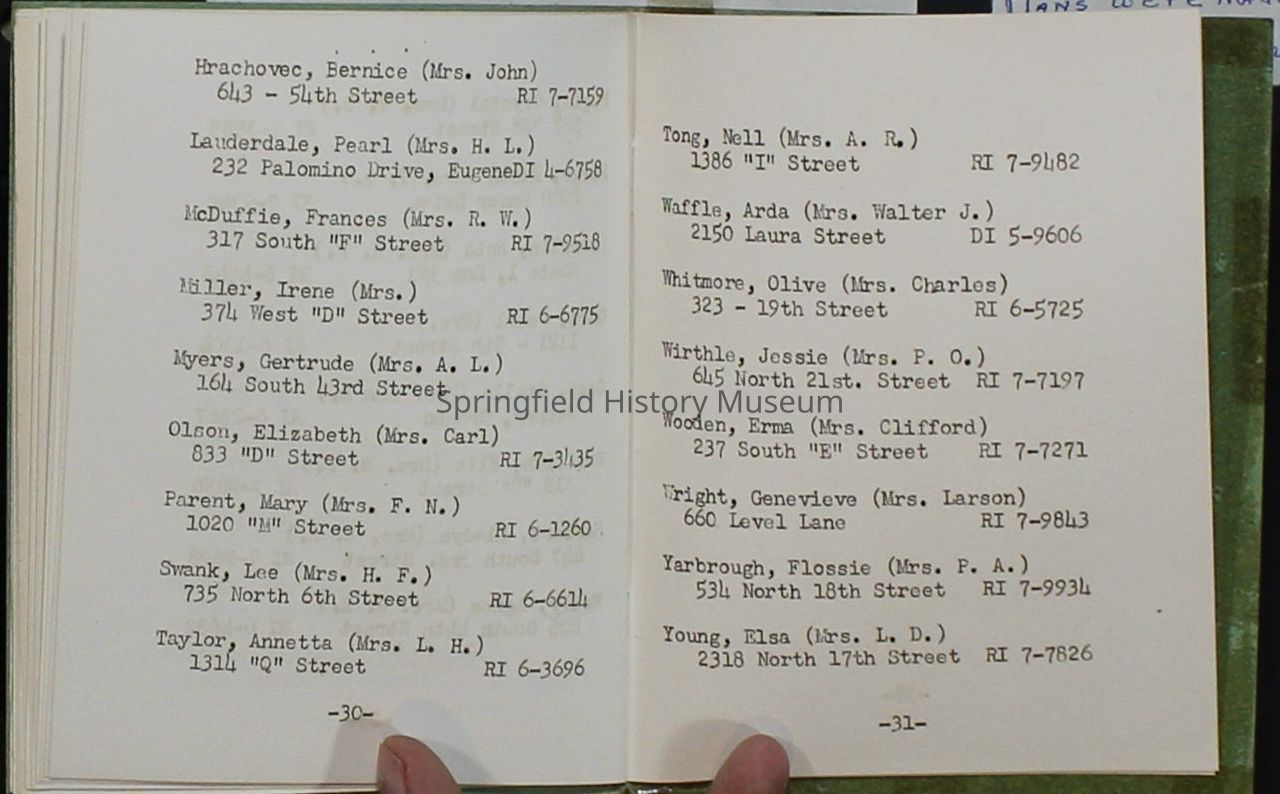 Hrachovec, Bernice (Mrs. John)
643 - 54th Street RI 7-7159
Lauderdale, Pearl (Mrs. H. L.)
232 Palomino Drive, EugeneDI 4-6758
McDuffie, Frances (Mrs. R. W.)
317 South "F" Street RI 7-9518
Miller, Irene (Mrs.)
374 West "D" Street RI 6-6775
Myers, Gertrude (Mrs. A. L.)
164 South 43rd Street
Olson, Elizabeth (Mrs. Carl)
833 "D" Street RI 7-3435
Parent, Mary (Mrs. F. N.)
1020 "M" Street RI 6-1260
Swank, Lee (Mrs. H. F.)
735 North 6th Street RI 6-6614
Taylor, Annetta (Mrs. L. H.)
1314 "Q" Street RI 6-3696
-30-
Tong, Nell (Mrs. A. R.)
1386 "I" Street RI 7-9482
Waffle, Arda (Mrs. Walter J.)
2150 Laura Street DI 5-9606
Whitmore, Olive (Mrs. Charles)
323 - 19th Street RI 6-5725
Wirthle, Jessie (Mrs. P. O.)
645 North 21st. Street RI 7-7197
Wooden, Erma (Mrs. Clifford)
237 South "E" Street RI 7-7271
Wright, Genevieve (Mrs. Larson)
660 Level Lane RI 7-9843
Yarbrough, Flossie (Mrs. P. A.)
534 North 18th Street RI 7-9934
Young, Elsa (Mrs. L. D.)
2318 North 17th Street RI 7-7826
-31-
Springfield History Museum